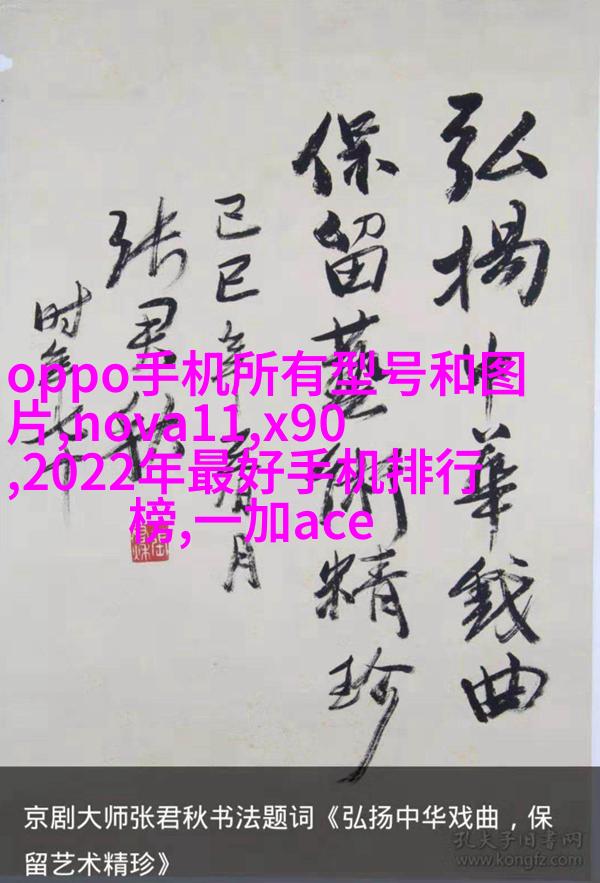 弘揚中華戲曲
保留藝術精珍
己巳年月
张君秋
时年
oppo手机所有型号和图
片,nova11,x90
,2022年最好手机排行
榜,一加ace
京剧大师张君秋书法题词《弘扬中华戏曲，保
留艺术精珍》
孔夫子旧书网
www.kongfz.com